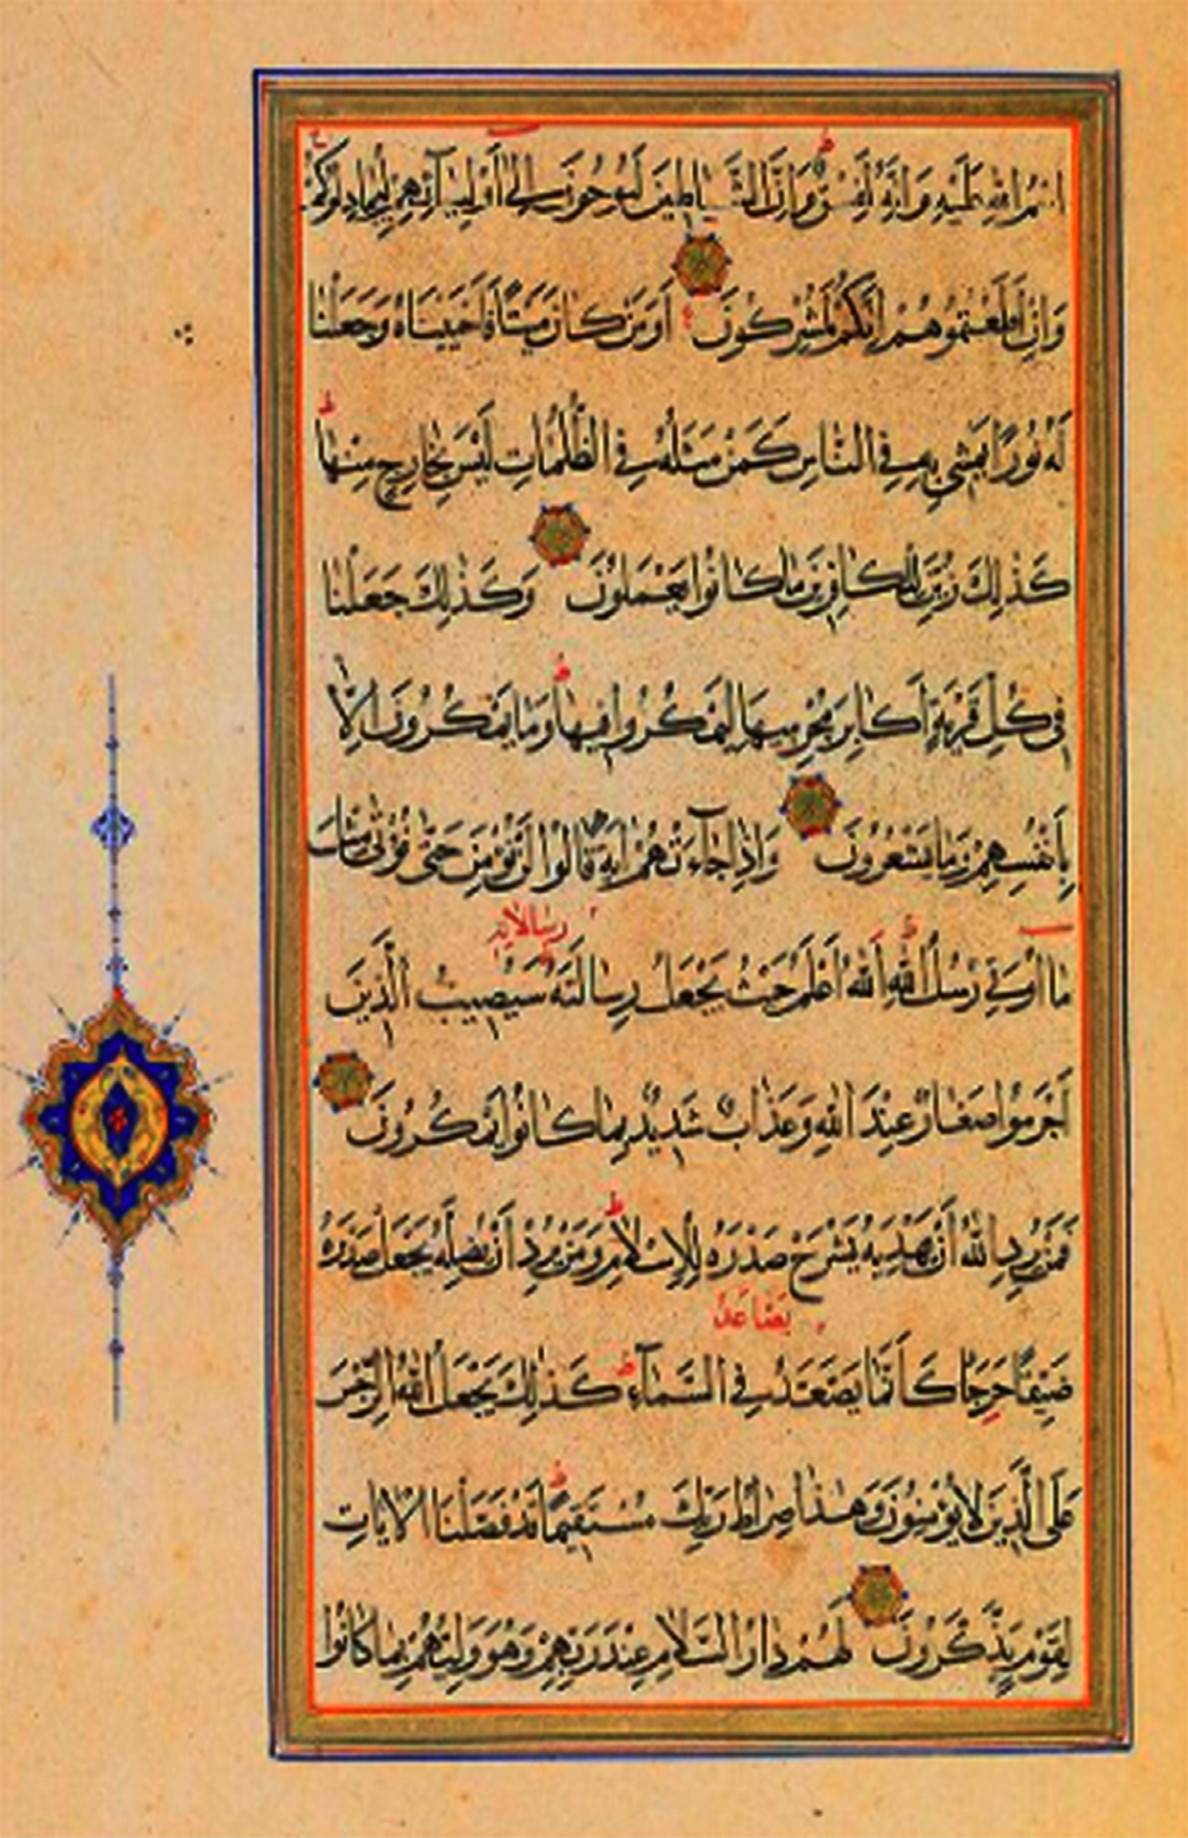 اسْمُ اللَّهِ عَلَيْهِ وَإِنَّهُ لَفِسْقٌ وَإِنَّ الشَّيَاطِينَ لَيُوحُونَ إِلَى أَوْلِيَائِهِمْ لِيُجَادِلُوكُمْ
وَإِنْ أَطَعْتُمُوهُمْ إِنَّكُمْ لَمُشْرِكُونَ أَوَمَنْ كَانَ مَيْتًا فَأَحْيَيْنَاهُ وَجَعَلْنَا
لَهُ نُورًا يَمْشِي بِهِ فِي النَّاسِ كَمَنْ مَثَلُهُ فِي الظُّلُمَاتِ لَيْسَ بِخَارِجٍ مِنْهَا
كَذَٰلِكَ زُيِّنَ لِلْكَافِرِينَ مَا كَانُوا يَعْمَلُونَ وَكَذَٰلِكَ جَعَلْنَا
فِي كُلِّ قَرْيَةٍ أَكَابِرَ مُجْرِمِيهَا لِيَمْكُرُوا فِيهَا وَمَا يَمْكُرُونَ إِلَّا
بِأَنْفُسِهِمْ وَمَا يَشْعُرُونَ وَإِذَا جَاءَتْهُمْ آيَةٌ قَالُوا لَنْ نُؤْمِنَ حَتَّىٰ نُؤْتَىٰ مِثْلَ
رسالاته
مَا أُوتِيَ رُسُلُ اللَّهِ اللَّهُ أَعْلَمُ حَيْثُ يَجْعَلُ رِسَالَتَهُ سَيُصِيبُ الَّذِينَ
أَجْرَمُوا صَغَارٌ عِنْدَ اللَّهِ وَعَذَابٌ شَدِيدٌ بِمَا كَانُوا يَمْكُرُونَ
فَمَنْ يُرِدِ اللَّهُ أَنْ يَهْدِيَهُ يَشْرَحْ صَدْرَهُ لِلْإِسْلَامِ وَمَنْ يُرِدْ أَنْ يُضِلَّهُ يَجْعَلْ صَدْرَهُ
يصّاعد
ضَيِّقًا حَرَجًا كَأَنَّمَا يَصَّعَّدُ فِي السَّمَاءِ كَذَٰلِكَ يَجْعَلُ اللَّهُ الرِّجْسَ
عَلَى الَّذِينَ لَا يُؤْمِنُونَ وَهَٰذَا صِرَاطُ رَبِّكَ مُسْتَقِيمًا قَدْ فَصَّلْنَا الْآيَاتِ
لِقَوْمٍ يَذَّكَّرُونَ لَهُمْ دَارُ السَّلَامِ عِنْدَ رَبِّهِمْ وَهُوَ وَلِيُّهُمْ بِمَا كَانُوا